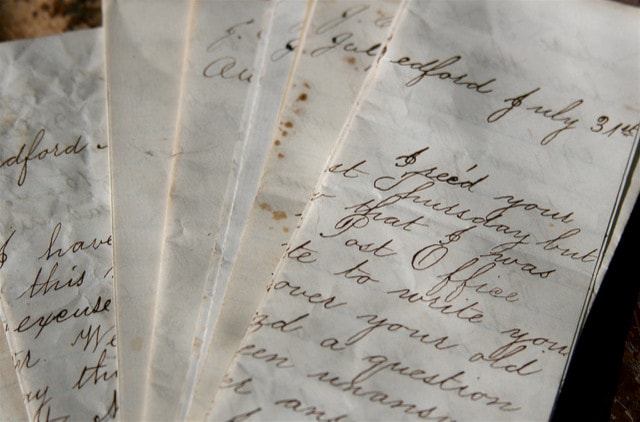 dford
I have
this
excuse
We
J.
Jul
Au
edford July 31st
I rec'd your
st Thursday but
that I was
Post Office
te to write you
over your old
a question
een unansw